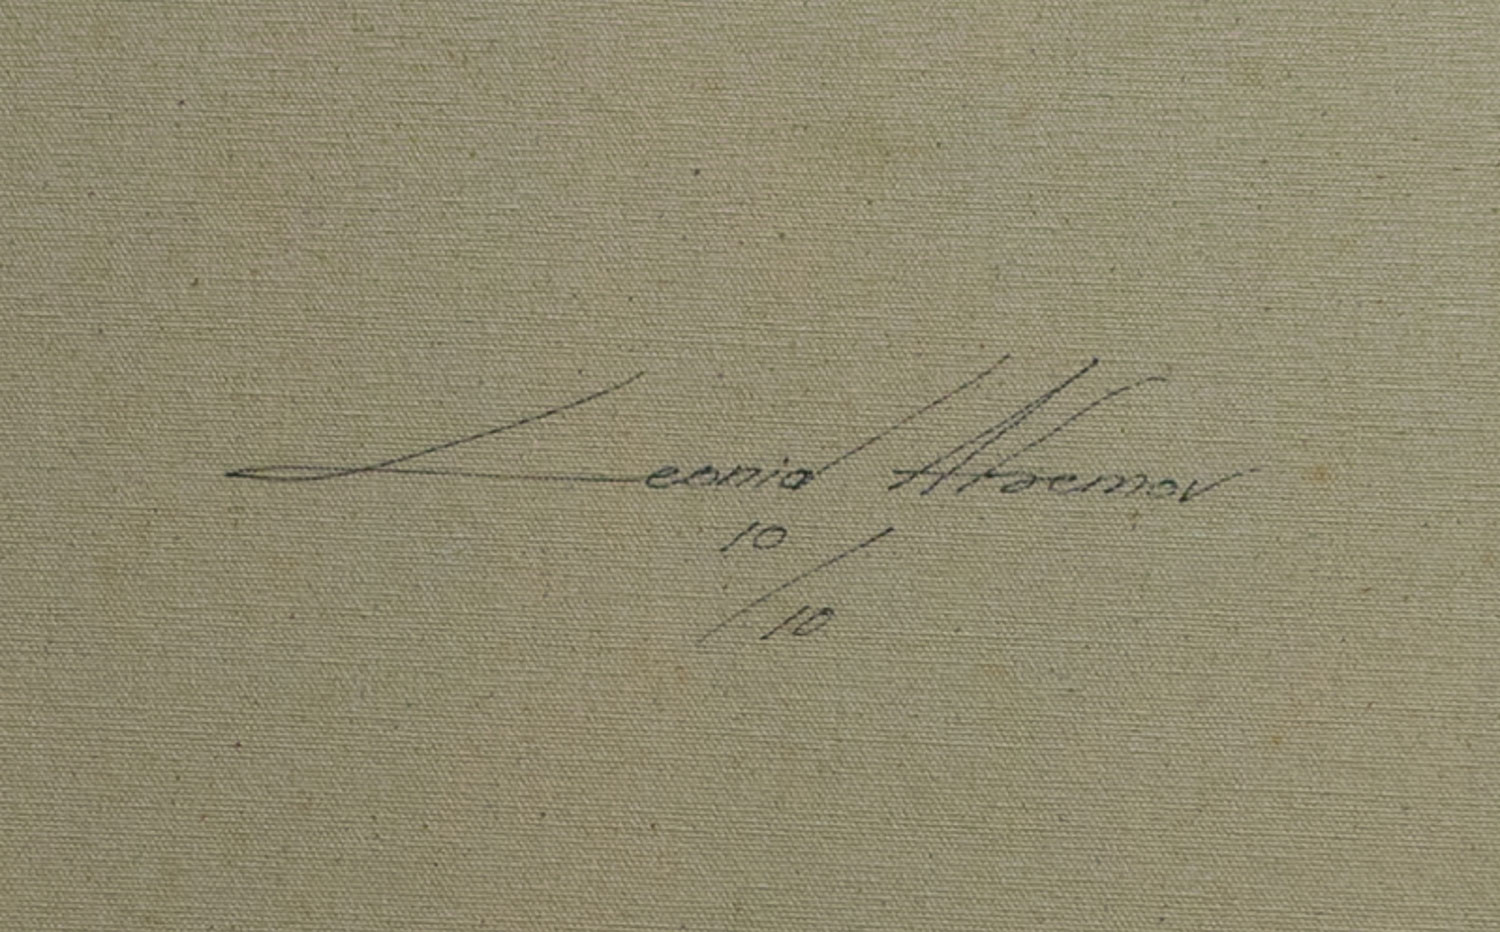 Leonid Afremov
10
/
10